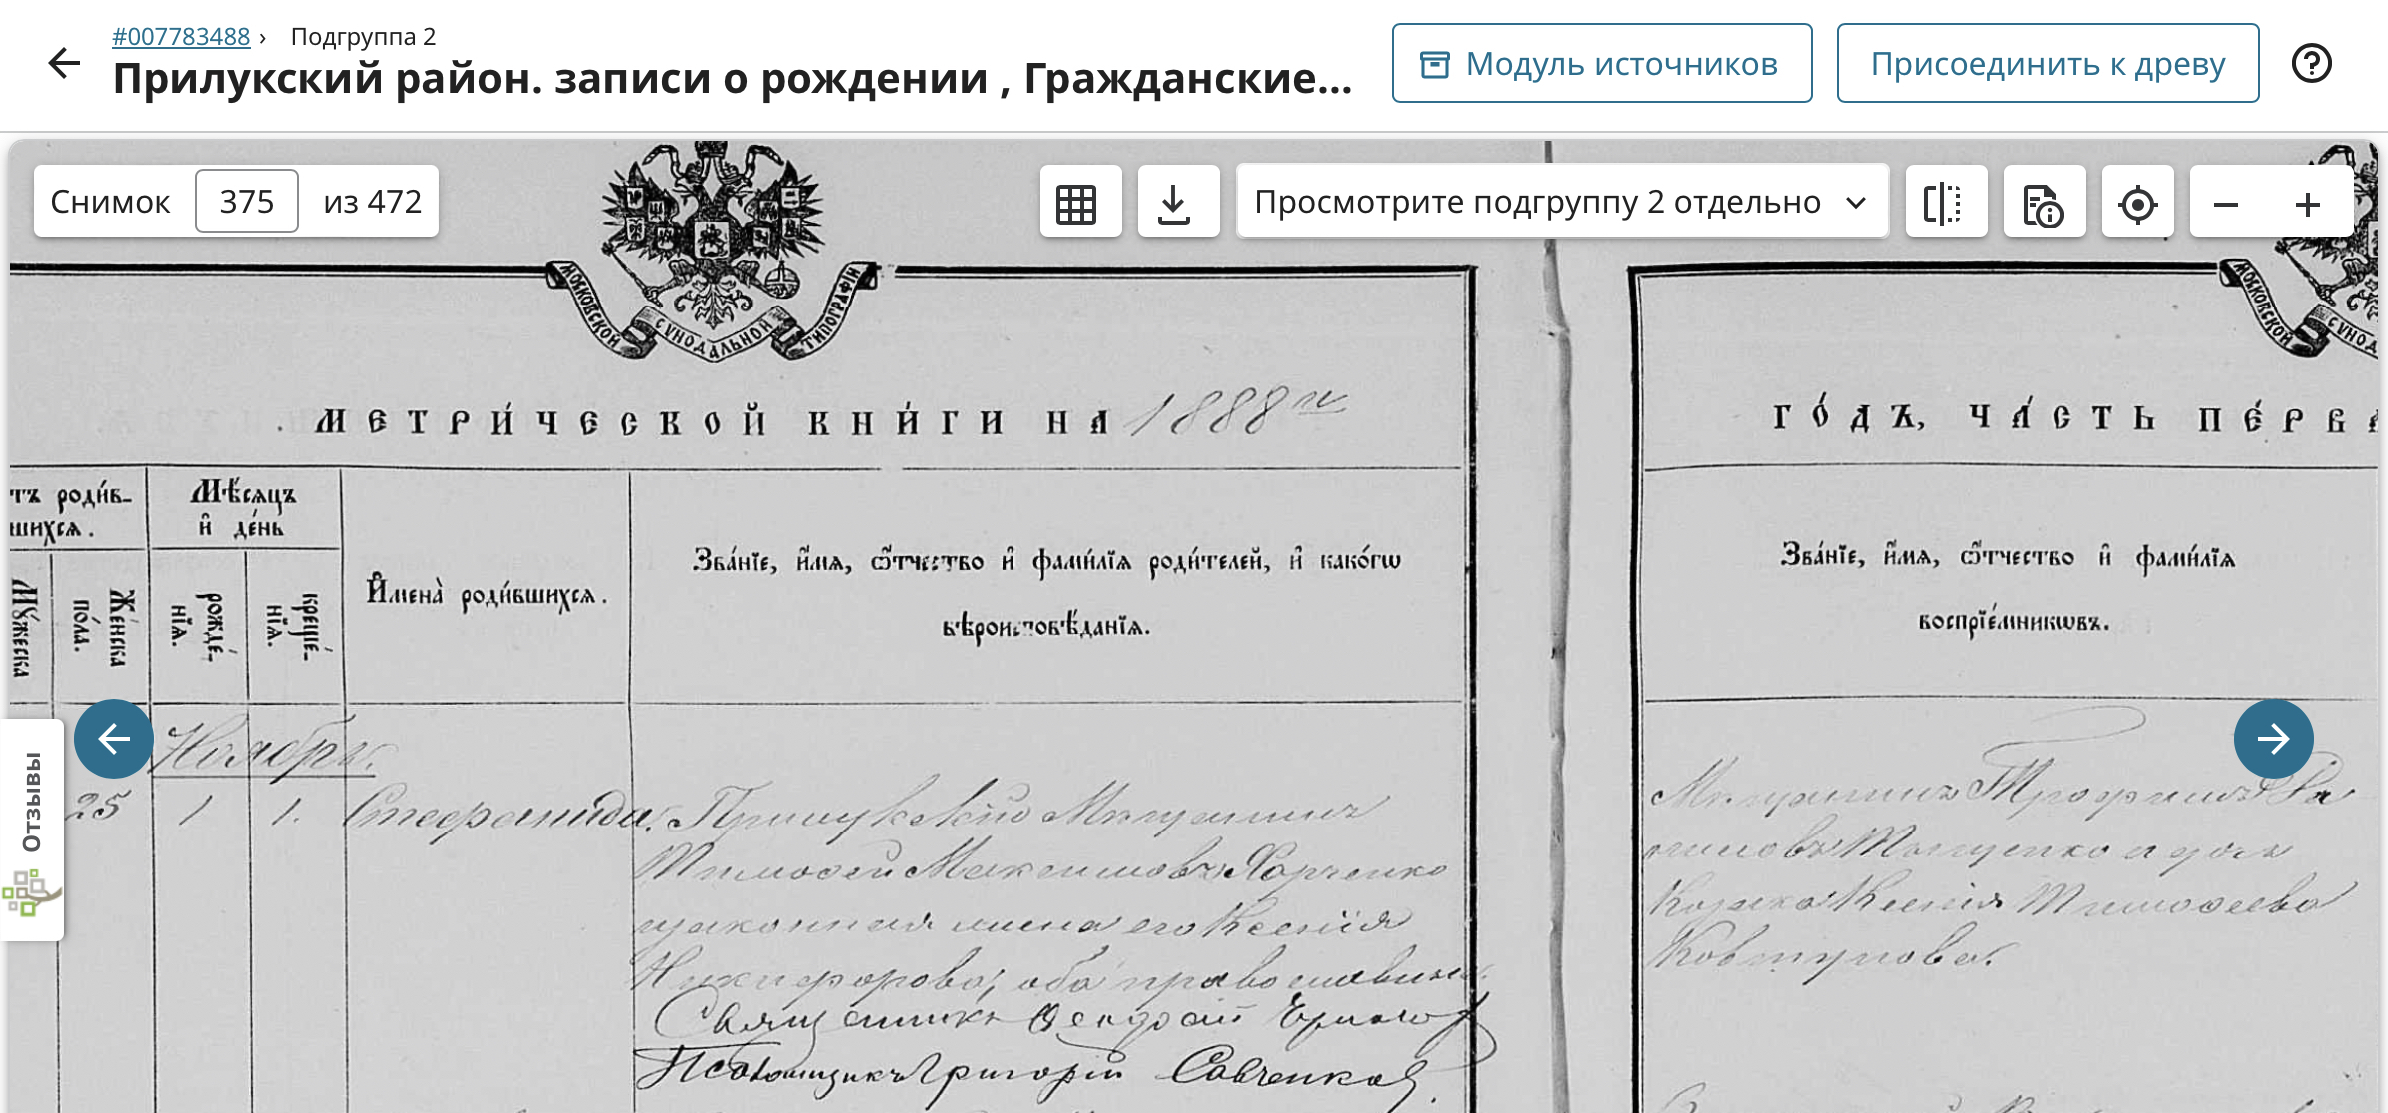 #007783488 › Подгруппа 2
Прилукский район. записи о рождении , Гражданские...
Модуль источников
Присоединить к древу
Снимок 375 из 472
Просмотрите подгруппу 2 отдельно
МОСКОВСКОЙ СѴНОДАЛЬНОЙ ТИПОГРАФІИ
МОСКОВСКОЙ СѴНОД
МЕТРИ́ЧЕСКОЙ КНИ́ГИ НА 1888й
ГО́ДЪ, ЧА́СТЬ ПЕ́РВА
тъ роди́в-
шихсѧ.
Мѣ́сѧцъ
и҆ де́нь
Мꙋ́жеска
Же́нска
по́ла.
рожде́-
нїѧ.
креще́-
нїѧ.
И҆мена̀ роди́вшихсѧ.
Зва́нїе, и҆́мѧ, ѻ҆́тчество и҆ фамі́лїѧ роди́телей, и҆ како́гѡ
вѣроисповѣ́данїѧ.
Зва́нїе, и҆́мѧ, ѻ҆́тчество и҆ фамі́лїѧ
воспрїе́мникѡвъ.
Ноябрь.
25 1 1. Стефанида. Прилукскій Мѣщанинъ
Тимофей Максимовъ Харченко
и законная жена его Ксенія
Никифорова, оба православные.
Священникъ Ѳеодосій
Псаломщикъ Григорій Савченко
Мѣщанинъ Трофимъ
Тищенко и дочь
Козака Ксенія Тимофеева
Ковтунова.
Отзывы